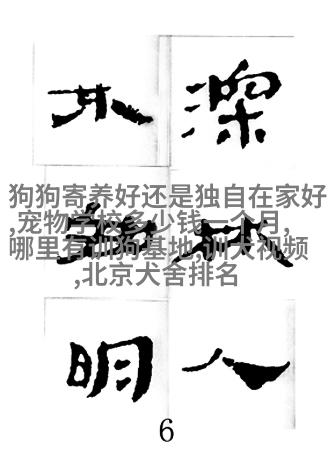 深林人
不知明
狗狗寄养好还是独自在家好
,宠物学校多少钱一个月,
哪里有训狗基地,训犬视频
,北京犬舍排名
6